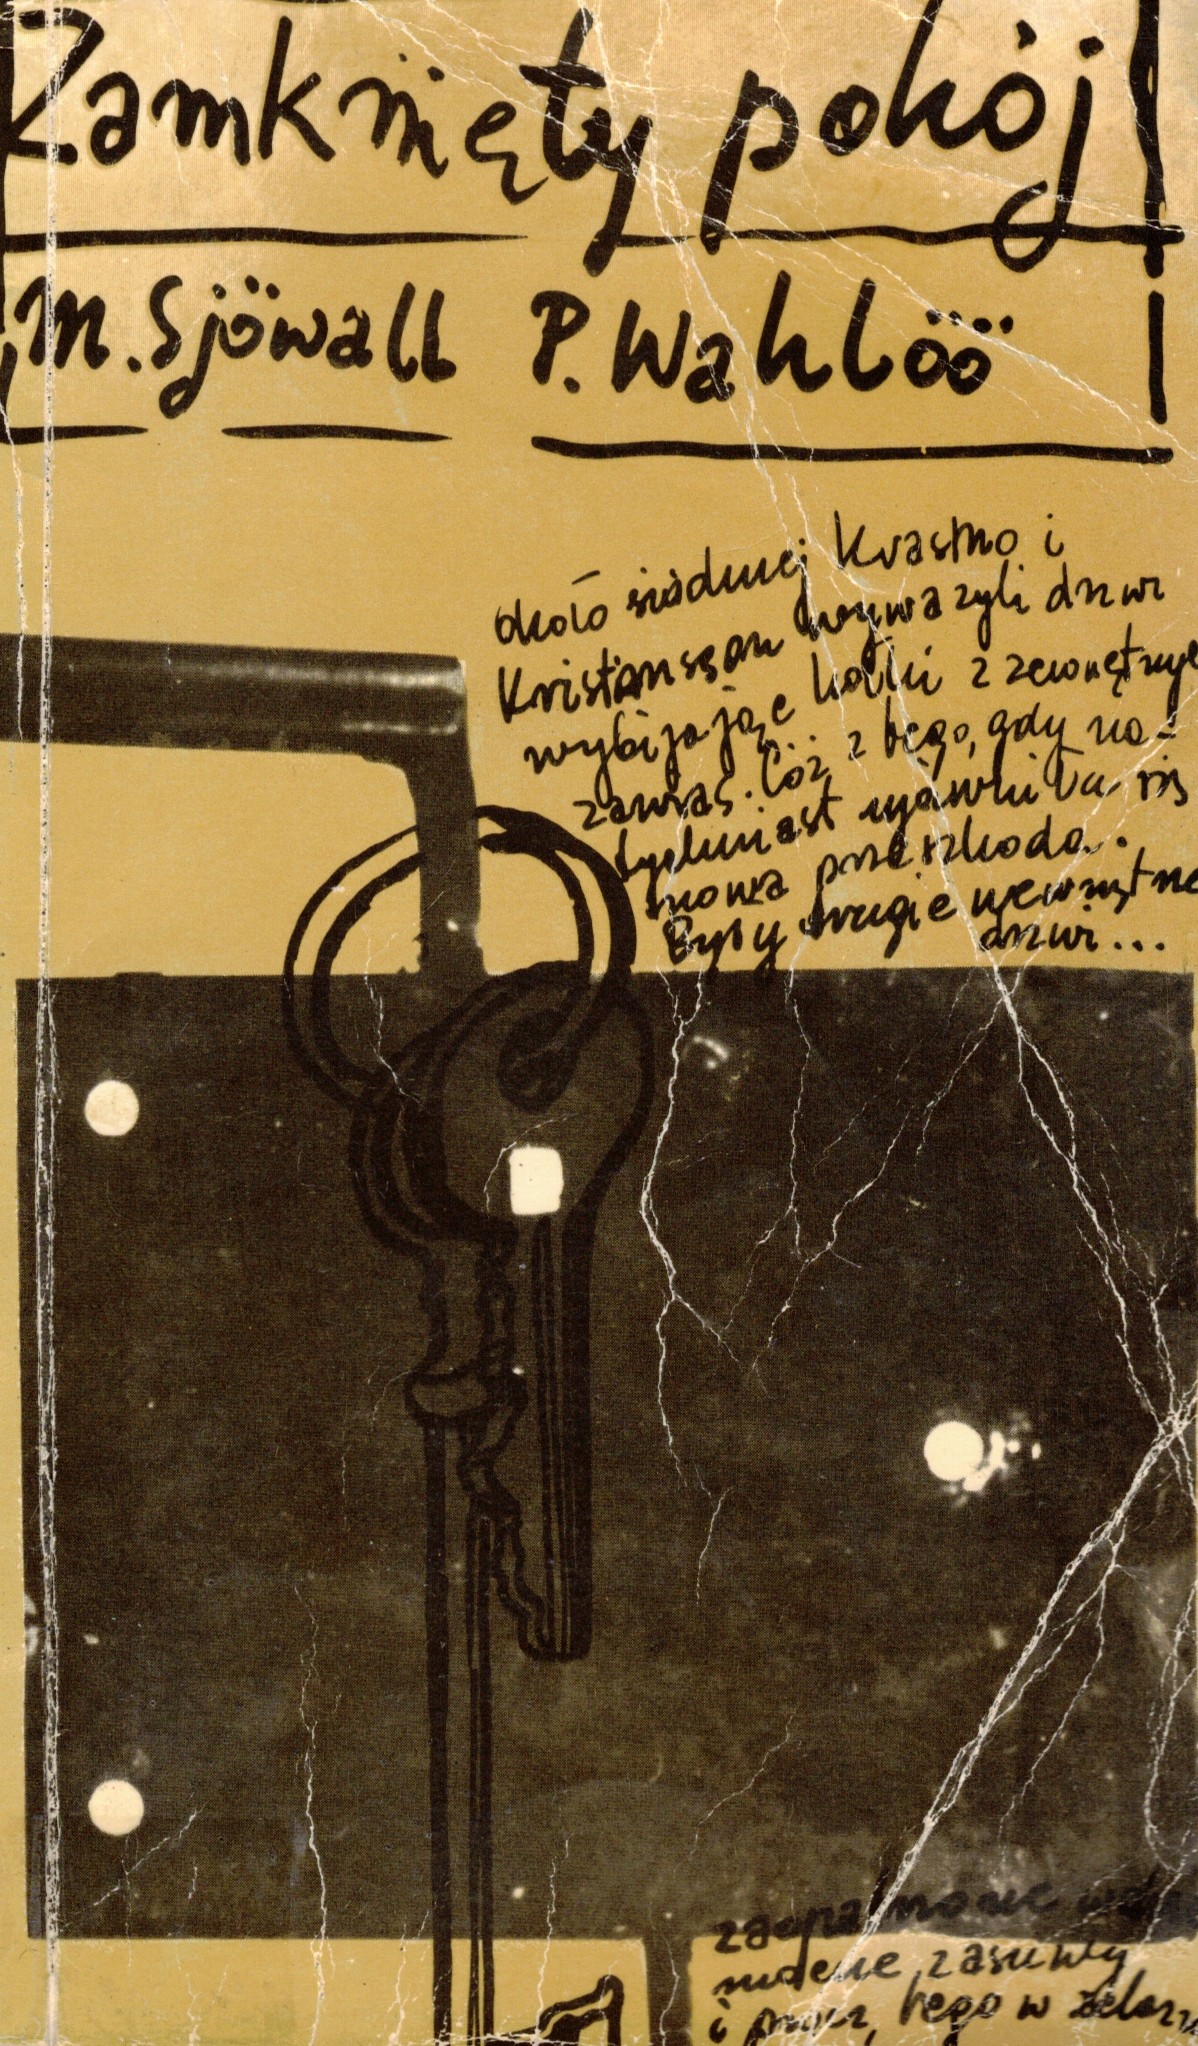 Zamknięty pokój
M. Sjöwall P. Wahlöö
około siódmej Kvastmo i
Kristiansson wyważyli drzwi
wybijając kołki z zewnętrznych
zawias. Cóż z tego, gdy na-
tychmiast ujawniła się
nowa przeszkoda.
Były drugie wewnętrzne
drzwi...
zaopatrzone w
mocne zasuwy
i prócz tego w żelaz